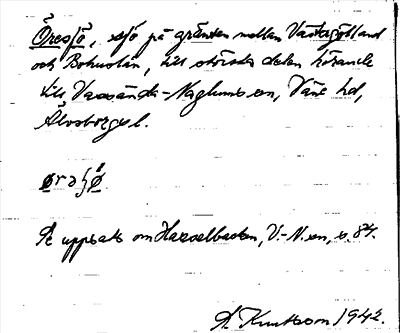 Öresjö, sjö på gränsen mellan Västergötland
och Bohuslän, till största delen hörande
till Vassända-Naglums sn, Väne hd,
Älvsborgs l.
Se uppsats om Hasselbacken, V.-N. sn, s. 84.
A. Knutsson 1942.